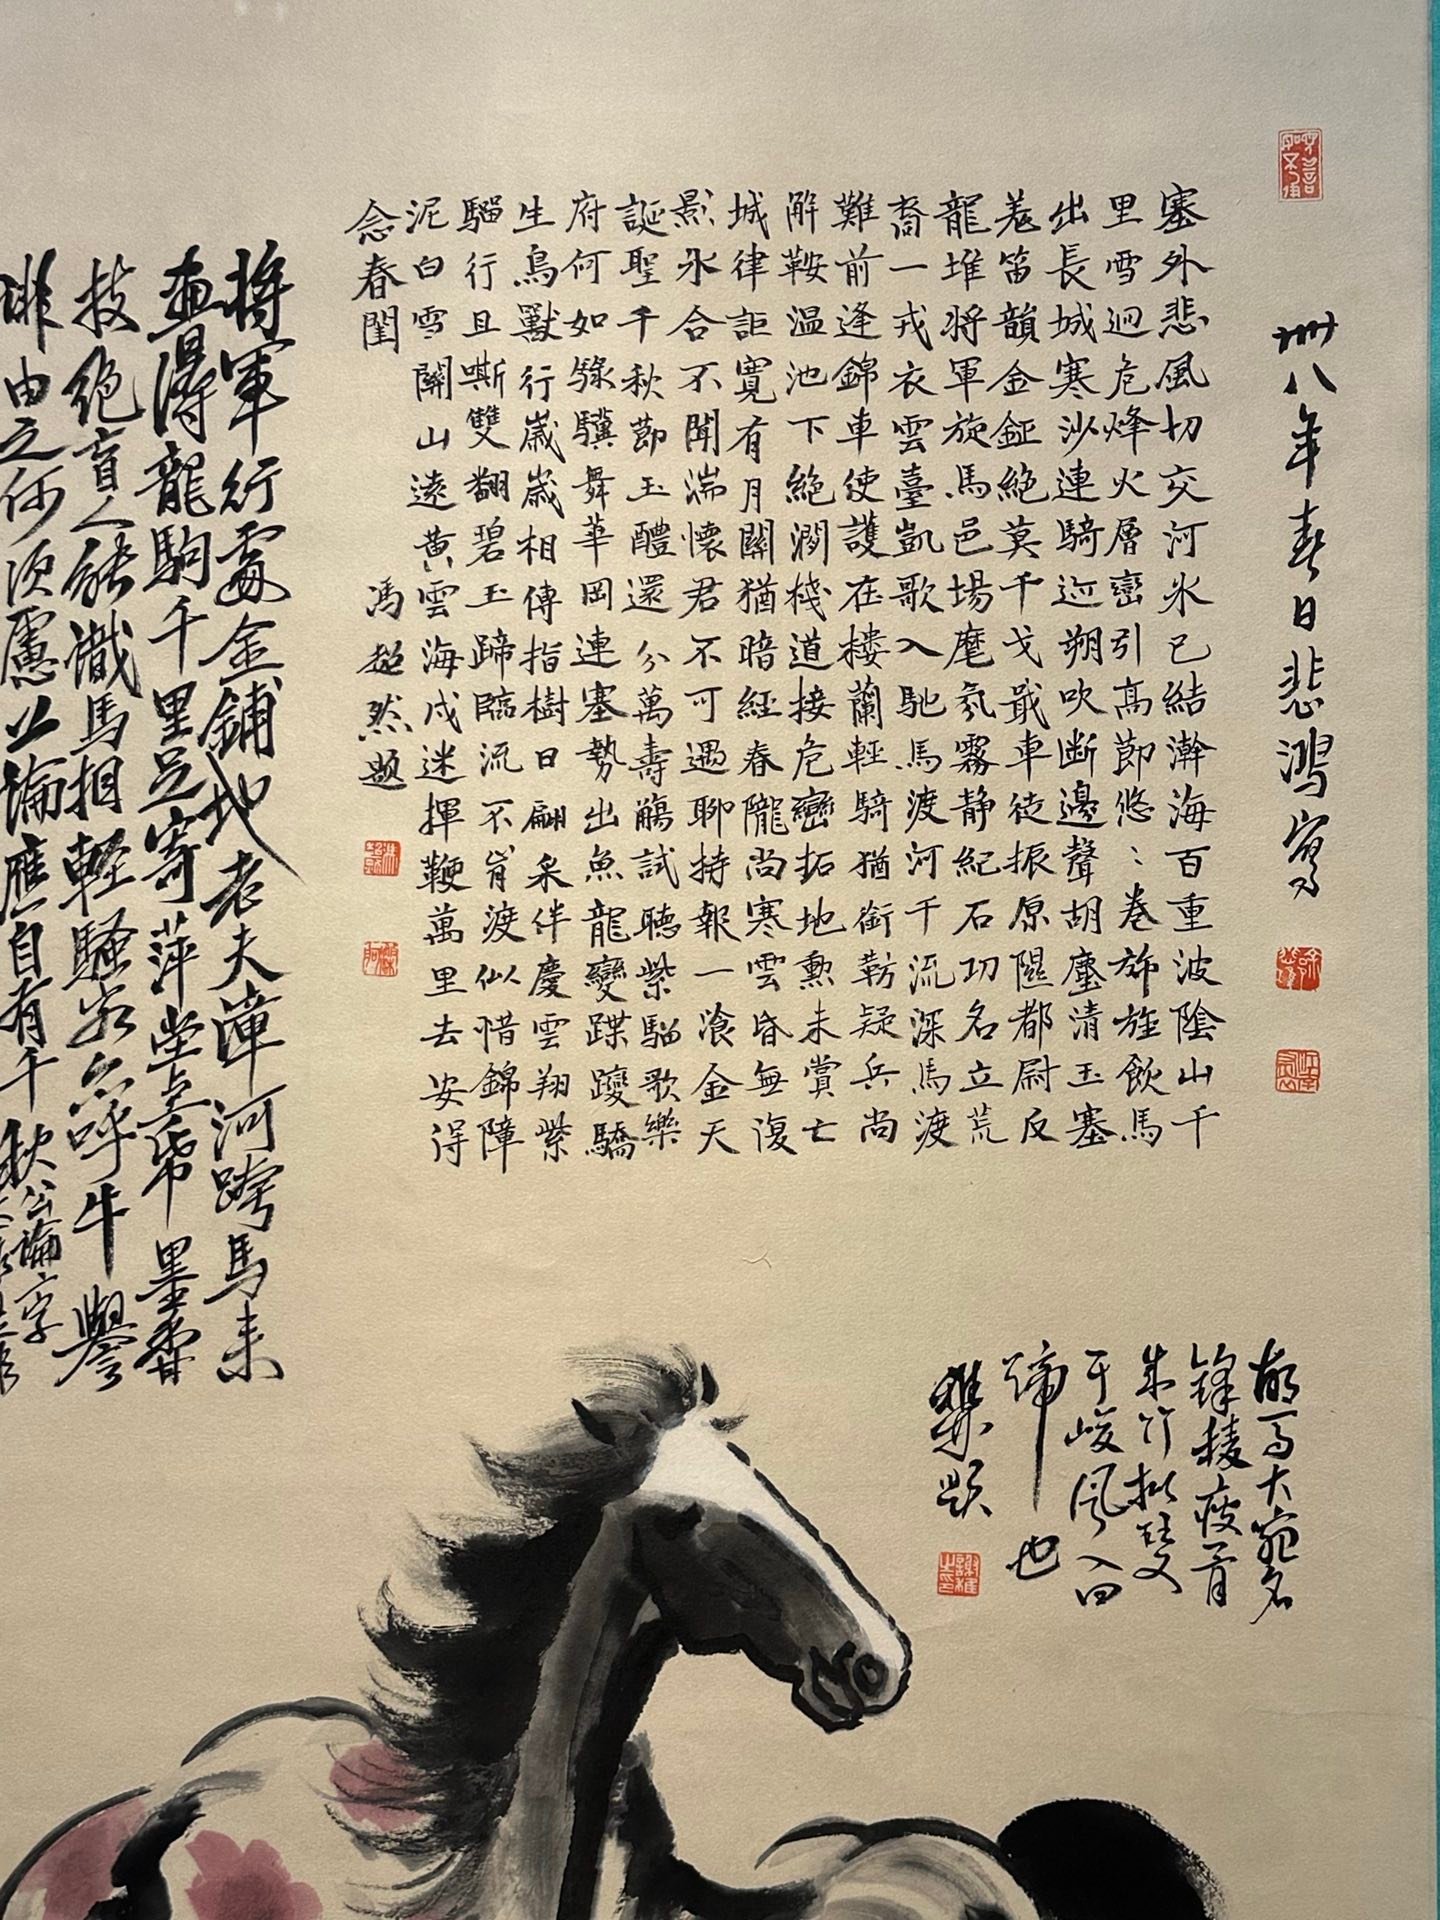 卅八年春日悲鴻寫
塞外悲風切交河氷已結瀚海百重波陰山千
里雪迥危烽火層巒引高節悠〻卷斾旌飲馬
出長城寒沙連騎迹朔吹断邊聲胡塵清玉塞
羌笛韻金鉦絶莫干戈戢車徒振原隰都尉反
龍堆將軍旋馬邑場麾氛霧静紀石功名立荒
裔一戎衣雲臺凱歌入馳馬渡河千流深馬渡
難前逢錦車使護在樓蘭輕騎猶銜勒疑兵尚
解鞍温池下絶澗棧道接危巒拓地勲未賞亡
城律詎寬有月關猶暗經春隴尚寒雲昏無復
影氷合不聞湍懷君不可遇聊持報一飡金天
誕聖千秋節玉醴還分萬壽觴試聽紫騮歌樂
府何如騄驥舞華岡連塞勢出魚龍變蹀躞驕
生鳥獸行歲歲相傳指樹日翩采伴慶雲翔紫
騮行且嘶雙翻碧玉蹄臨流不肯渡似惜錦障
泥白雪關山遠黄雲海戍迷揮鞭萬里去安得
念春閨
馮超然題
將軍行處金鋪地老夫漳河跨馬来
畫得龍駒千里足寄萍堂上帋墨香
技絶盲人能識馬相輕騷客以呼牛譽
誹由之何須慮公論應自有千秋
公論字
胡馬大宛名
鋒棱瘦骨
成竹批雙
耳峻風入四
蹄也
題